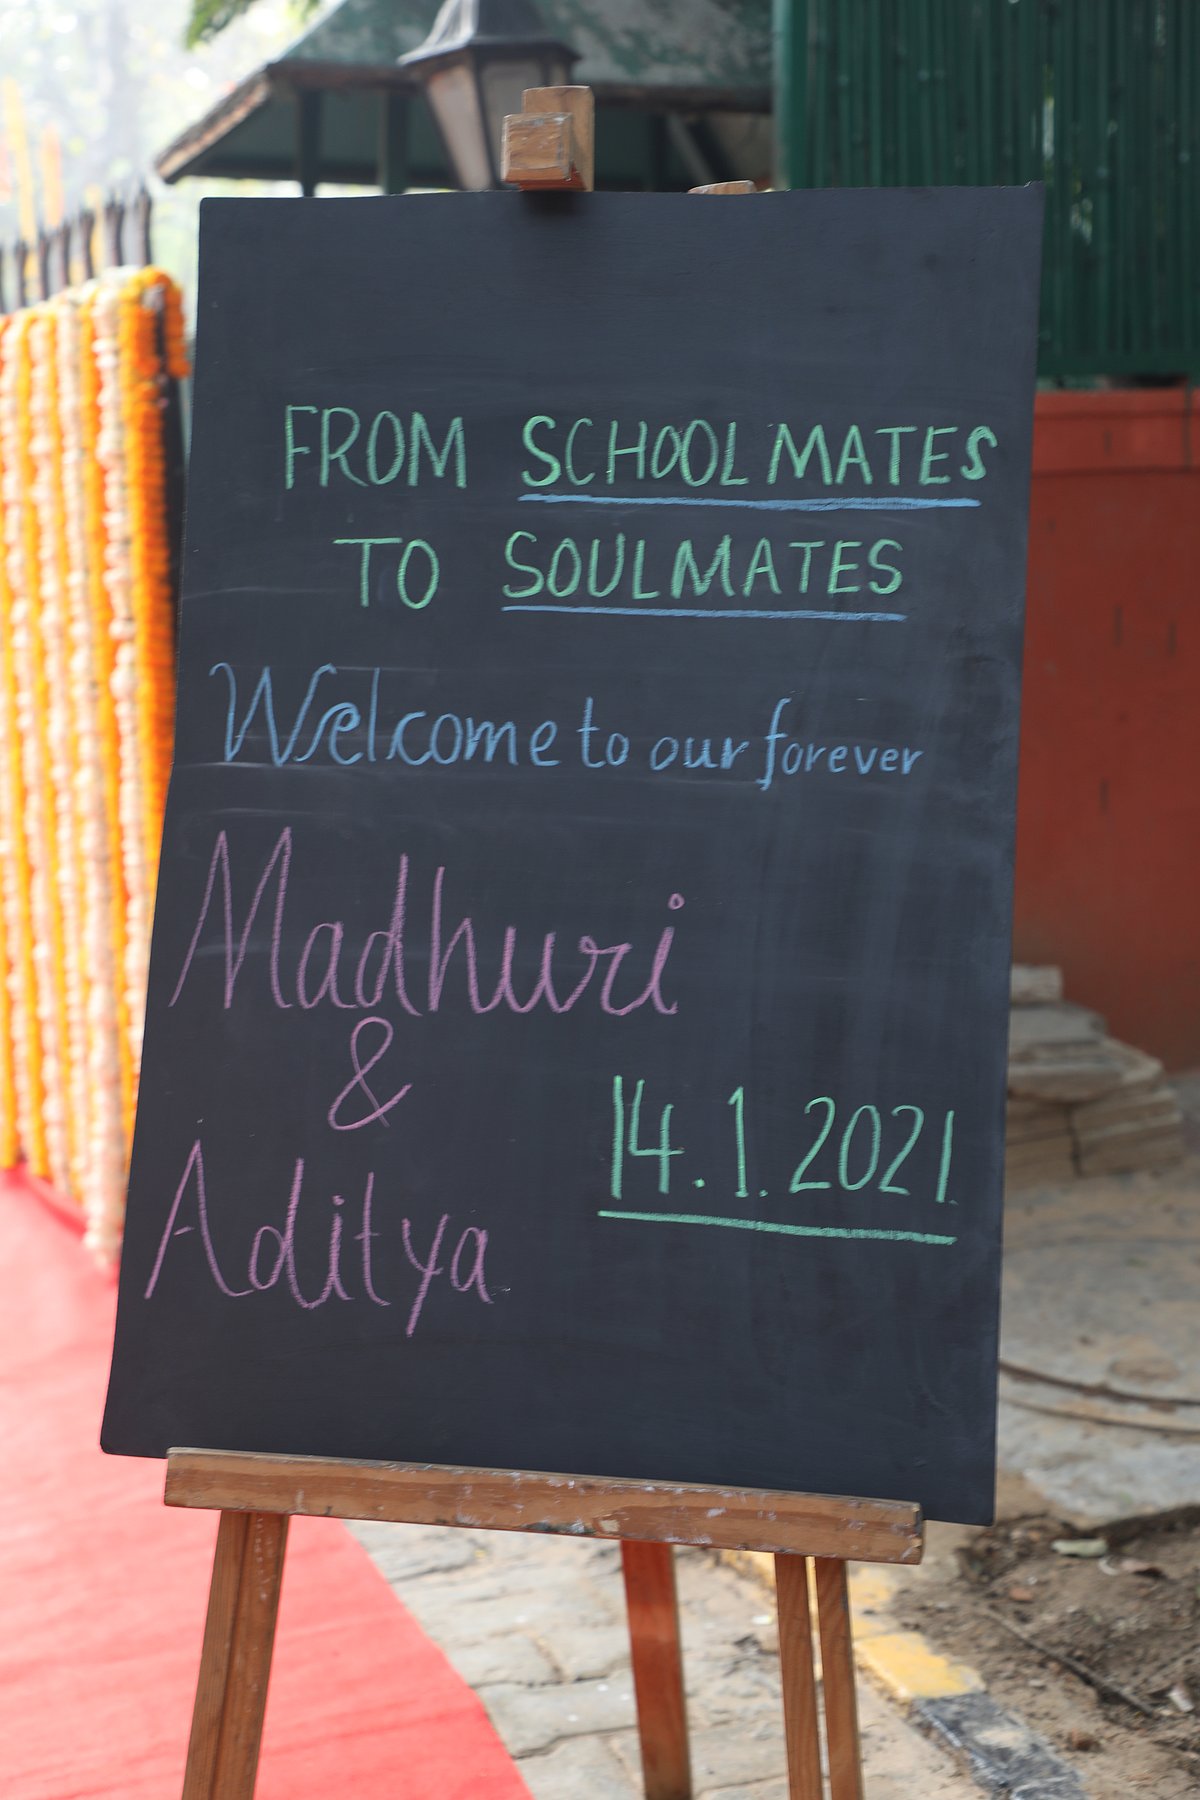 FROM SCHOOLMATES
TO SOULMATES
Welcome to our forever
Madhuri
&
Aditya
14.1.2021